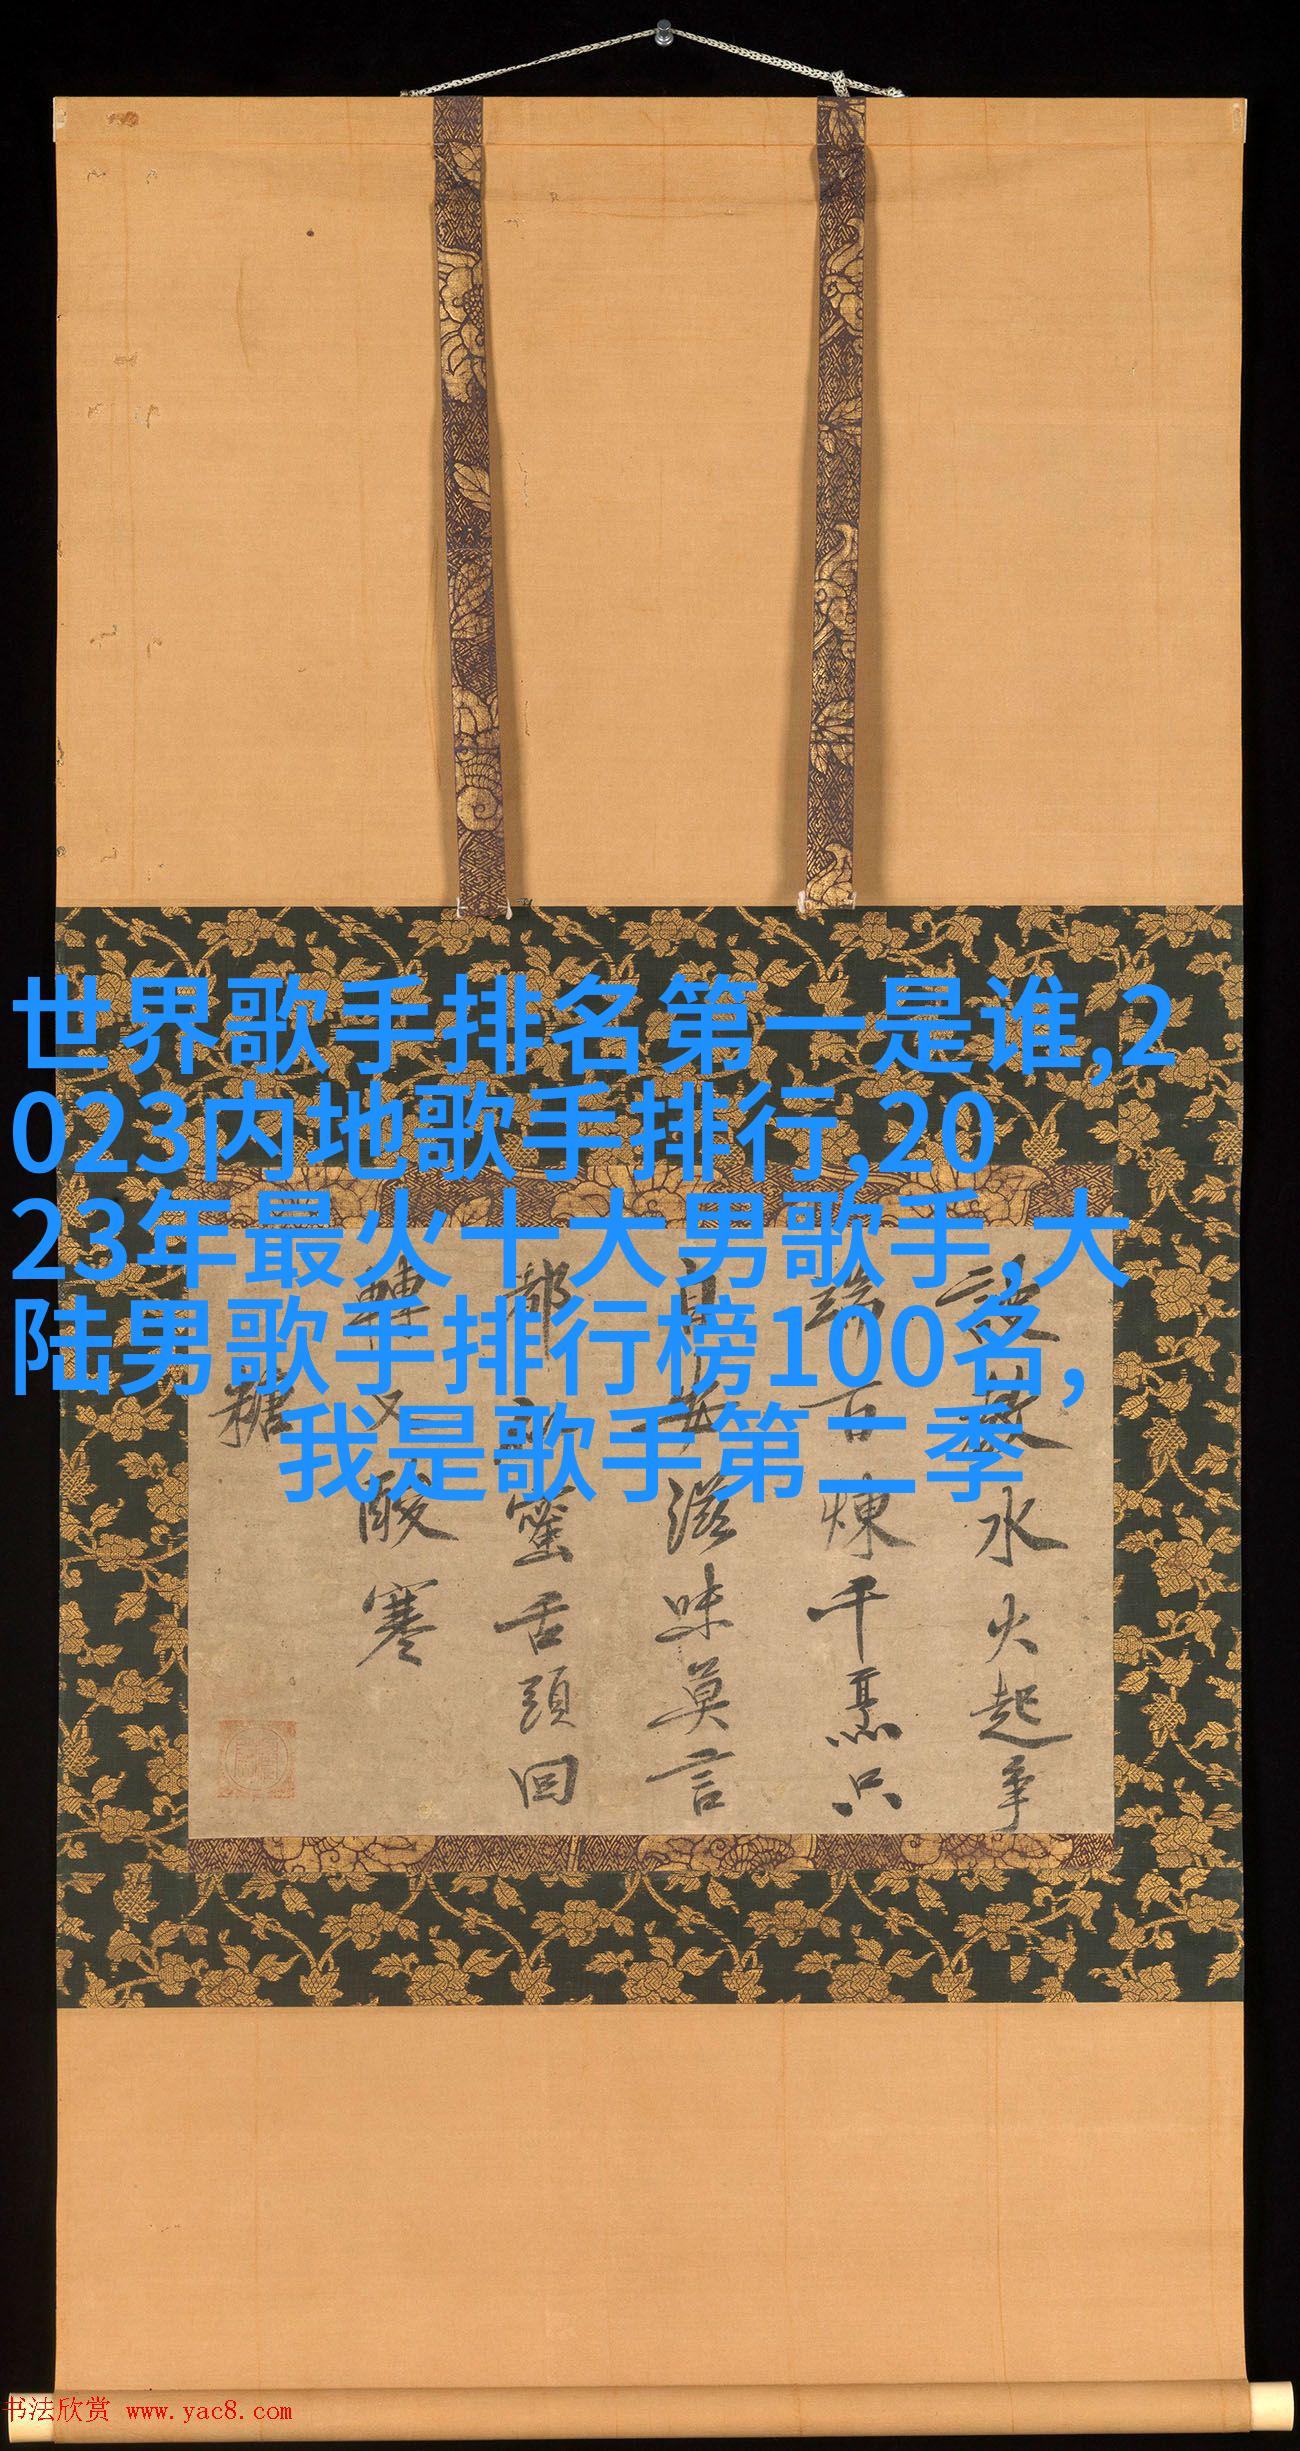 世界歌手排名第一是谁,2
023内地歌手排行,20
23年最火十大男歌手,大
陆男歌手排行榜100名,
我是歌手第二季
水火起争
百煉千烹只
滋味莫言
蜜舌頭回
轉又酸寒
糖
书法欣赏 www.yac8.com